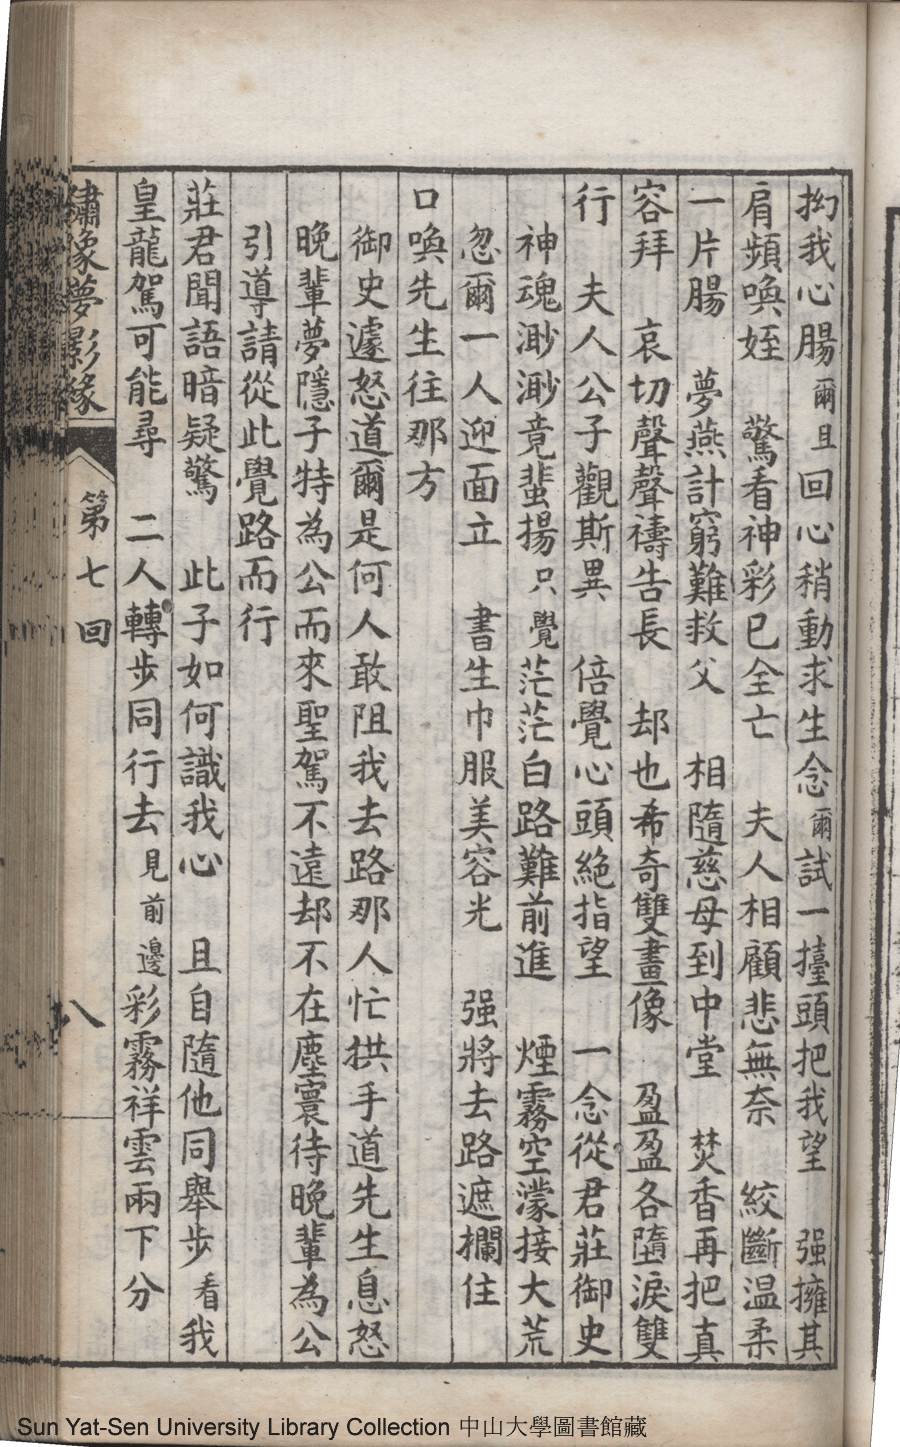 拗我心腸爾且回心稍動求生念爾試一擡頭把我望　强擁其
肩頻喚姪　驚看神彩已全亡　夫人相顧悲無奈　絞斷温柔
一片腸　夢燕計窮難救父　相隨慈母到中堂　焚香再把真
容拜　哀切聲聲禱告長　却也希奇雙畫像　盈盈各墮淚雙
行　夫人公子觀斯異　倍覺心頭絶指望　一念從君莊御史
神魂渺渺竟蜚揚只覺茫茫白路難前進　煙霧空濛接大荒
忽爾一人迎面立　書生巾服美容光　强將去路遮攔住
口喚先生往那方
御史遽怒道爾是何人敢阻我去路那人忙拱手道先生息怒
晚輩夢隱子特為公而來聖駕不遠却不在塵寰待晚輩為公
引導請從此覺路而行
莊君聞語暗疑驚　此子如何識我心　且自隨他同舉步看我
皇龍駕可能尋　二人轉步同行去見前邊彩霧祥雲兩下分
繡像夢影緣
第七回
八
Sun Yat-Sen University Library Collection 中山大學圖書館藏